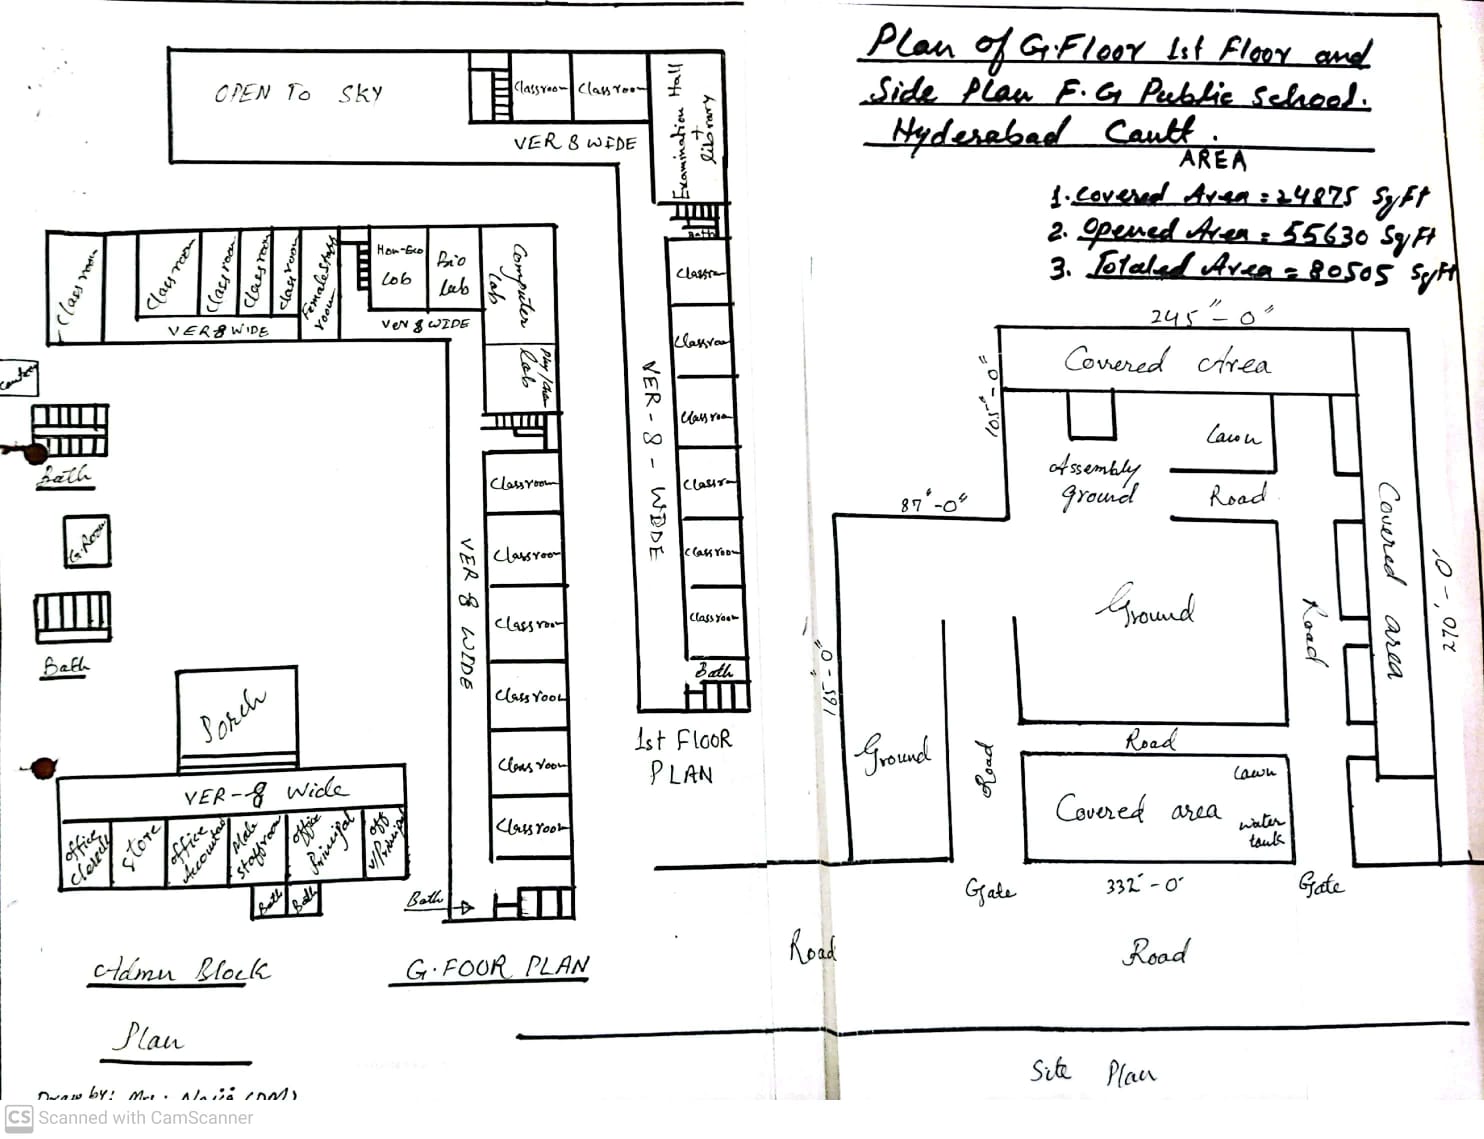 Plan of G.Floor 1st Floor and
Side Plan F.G Public School.
Hyderabad Cantt.
AREA
1. Covered Area = 24875 SqFt
2. Opened Area = 55630 SqFt
3. Totaled Area = 80505 SqFt
OPEN TO SKY
Classroom
Classroom
VER 8 WIDE
Examination Hall
+
library
Bath
Classro
Classroo
Classroo
VER-8-WIDE
Classro
Classroom
Classroom
Bath
1st FLOOR
PLAN
Classroom
Classroom
Classroom
Classroom
Classroom
Female Staff
room
Hom-Eco
Lab
Bio
Lab
Computer
Lab
VER 8 WIDE
VER 8 WIDE
Phy/Chem
Lab
Classroom
Classroom
Classroom
Classroom
Classroom
Classroom
VER 8 WIDE
Bath
G.FOOR PLAN
Bath
G.Room
Bath
Porch
VER-8 Wide
Office
Clerck
Store
Office
Accountant
Male
Staffroom
Office
Principal
Off
V/Principal
Bath
Bath
Admn Block
Plan
245"-0"
Covered Area
105"-0"
Lawn
Assembly
Ground
Road
87'-0"
Ground
Road
Covered area
270'-0"
165"-0"
Ground
Road
Road
Lawn
Covered area
water
tank
Gate
332'-0"
Gate
Road
Road
Site Plan
CS Scanned with CamScanner